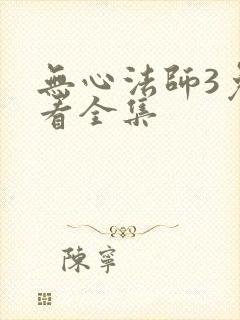 無心法師3
看全集
陳寧